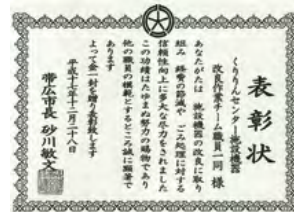 表彰状
くりりんセンター施設機器
改良作業チーム職員一同 様
あなたがたは 施設機器の改良に取り
組み 経費の節減や ごみ処理に対する
信頼性向上に多大な尽力をされました
この功績はたゆまぬ努力の賜物であり
他の職員の模範とするところ誠に顕著で
あります
よって金一封を贈り表彰致します
平成十七年十二月二十八日
帯広市長 砂川敏文